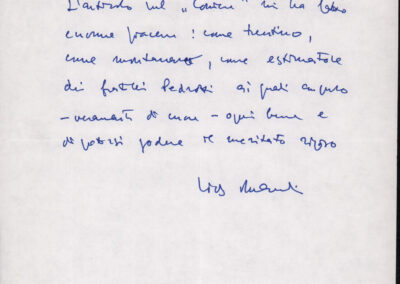 L'articolo sul "Corriere" mi ha fatto
enorme piacere: come trentino,
come montanaro, come estimatore
dei fratelli Pedrotti ai quali auguro
- veramente di cuore - ogni bene e
di potersi godere il meritato riposo